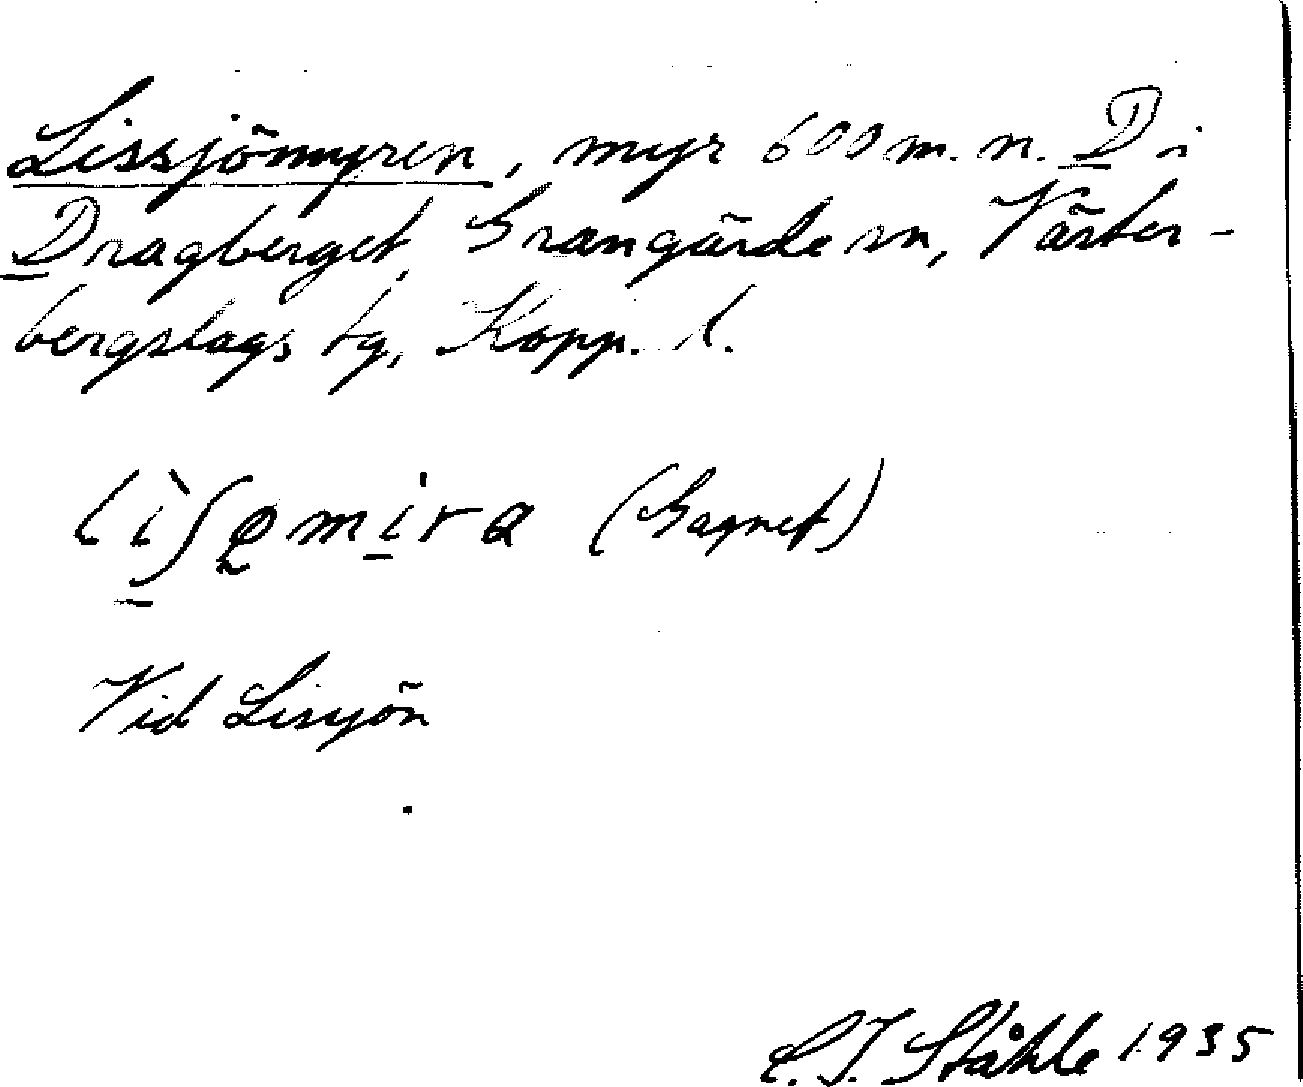 Lissjömyren, myr 600 m. n. D i
Dragberget, Grangärde sn, Väster-
bergslags tg, Kopp. l.
(Gagnef)
Vid Lisjön
C. I. Ståhle 1935